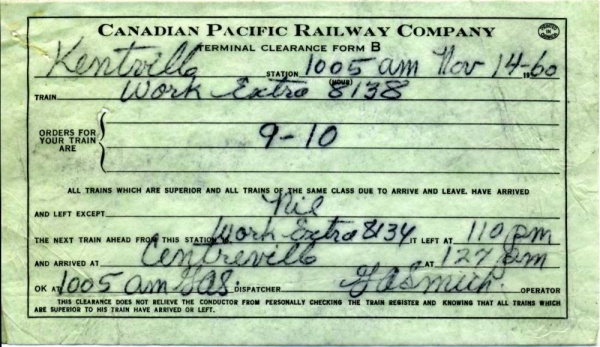 CANADIAN PACIFIC RAILWAY COMPANY
PRINTED IN CANADA
TERMINAL CLEARANCE FORM B
Kentville STATION 1005 am Nov 14-1960
(HOUR)
TRAIN Work Extra 8138
ORDERS FOR
YOUR TRAIN
ARE
9-10
ALL TRAINS WHICH ARE SUPERIOR AND ALL TRAINS OF THE SAME CLASS DUE TO ARRIVE AND LEAVE, HAVE ARRIVED
AND LEFT EXCEPT Nil
THE NEXT TRAIN AHEAD FROM THIS STATION Work Extra 8134 IT LEFT AT 110 pm
AND ARRIVED AT Centreville AT 127 pm
OK AT 1005 am GAS DISPATCHER GA Smith OPERATOR
THIS CLEARANCE DOES NOT RELIEVE THE CONDUCTOR FROM PERSONALLY CHECKING THE TRAIN REGISTER AND KNOWING THAT ALL TRAINS WHICH
ARE SUPERIOR TO HIS TRAIN HAVE ARRIVED OR LEFT.